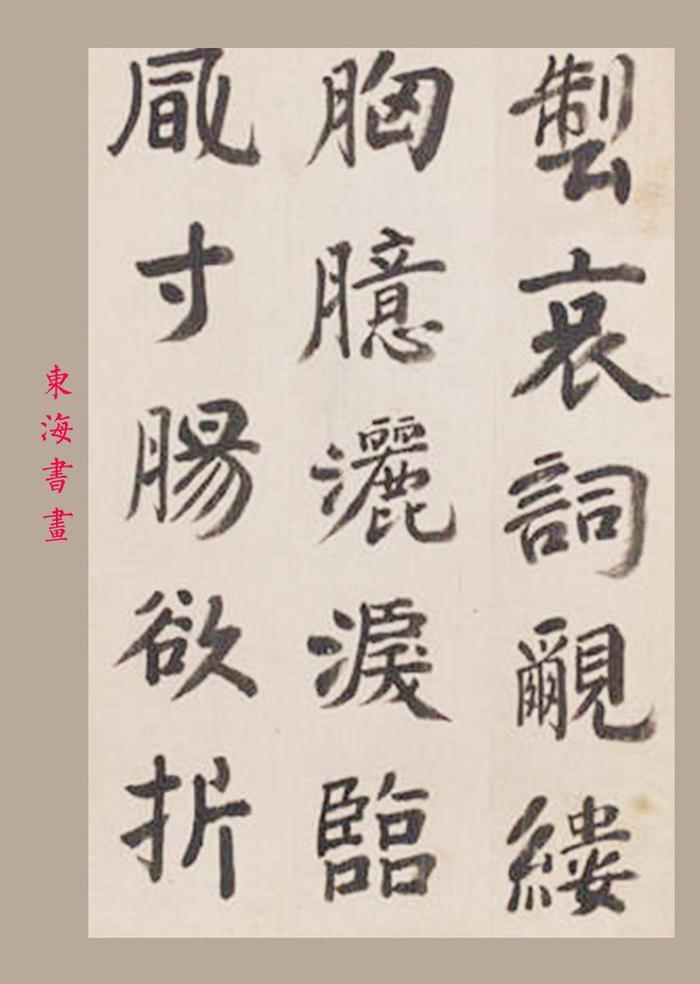 製哀詞覼縷
胸臆灑淚臨
風寸腸欲折
東海書畫